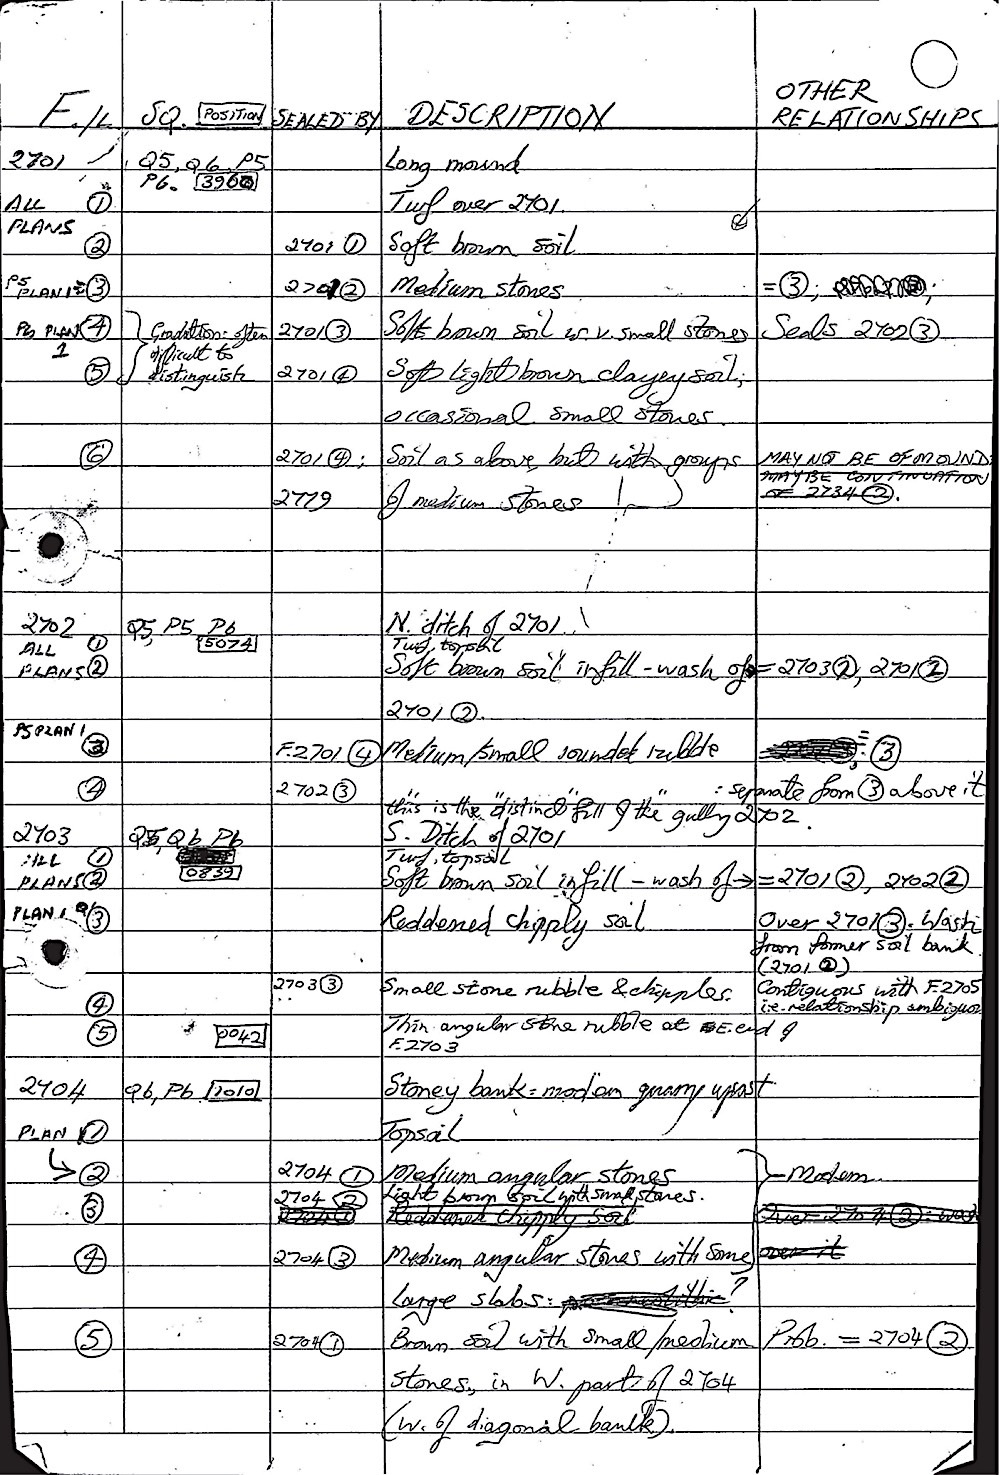 F./L SQ. POSITION SEALED BY DESCRIPTION OTHER RELATIONSHIPS
2701 Q5, Q6, P5 Long mound
P6. 3960
ALL ① Turf over 2701.
PLANS
② 2701 ① Soft brown soil
P5 PLAN 1 ③ 2701 ② Medium stones = ③;
P6 PLAN 1 ④ Gradation: often 2701 ③ Soft brown soil w. v. small stones Seals 2702 ③
difficult to
⑤ distinguish 2701 ④ Soft light brown clayey soil;
occasional small stones.
⑥ 2701 ④; Soil as above, but with groups MAY NOT BE OF MOUND
MAY BE CONTINUATION
2779 of medium stones OF 2734 ②.
2702 Q5, P5 P6 N. ditch of 2701
ALL ① 5074 Turf, topsoil
PLANS ② Soft brown soil infill - wash of = 2703 ②, 2701 ②
2701 ②.
P5 PLAN 1
③ F.2701 ④ Medium/small rounded rubble = ③
④ 2702 ③ : separate from ③ above it
"this is the "distinct" fill of the" gully 2702.
2703 Q5, Q6 P6 S. Ditch of 2701
ALL ① Turf, topsoil
PLANS ② 0839 Soft brown soil infill - wash of → = 2701 ②, 2702 ②
PLAN 1 ③ Reddened chipply soil Over 2701 ③. Wash
from former soil bank
(2701 ②)
④ 2703 ③ Small stone rubble & chipples. Contiguous with F.2705
i.e. relationship ambiguous
⑤ 0042 Thin angular stone rubble at E. end of
F.2703
2704 Q6, P6 1010 Stoney bank = modern quarry upcast
PLAN 1 ① Topsoil
② 2704 ① Medium angular stones - Modern.
③ 2704 ② Light brown soil with small stones.
2704 ① Reddened chipply soil Over 2704 ②: wash
④ 2704 ③ Medium angular stones with some over it
large slabs: ?
⑤ 2704 ① Brown soil with small/medium Prob. = 2704 ②
stones, in W. part of 2704
(W. of diagonal bank).